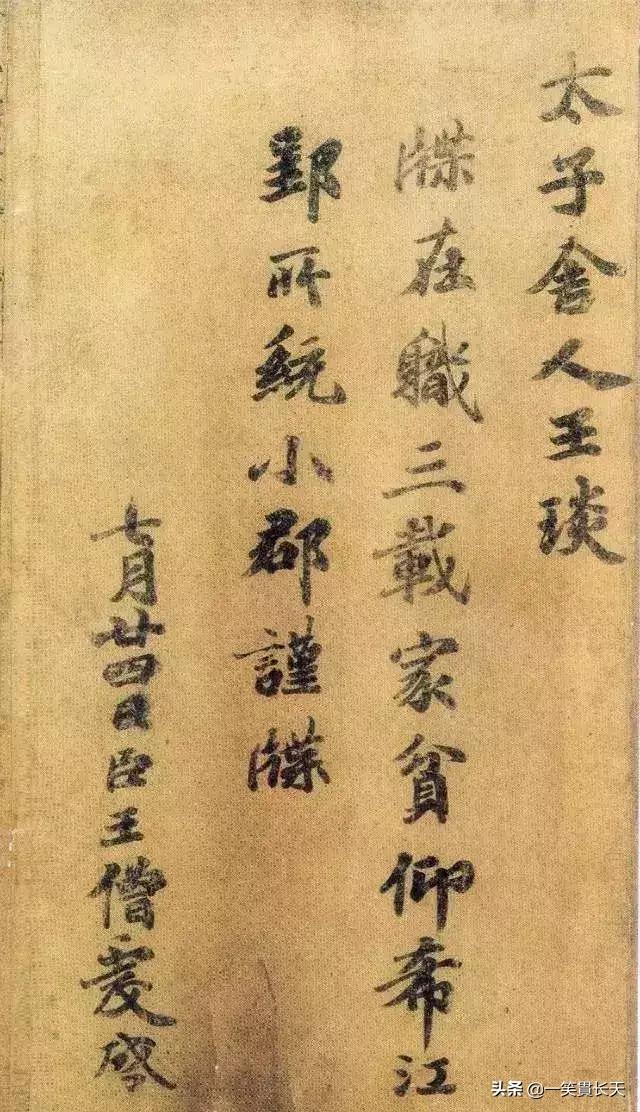 太子舍人王琰
牒在職三載家貧仰希江
郢所統小郡謹牒
七月廿四日臣王僧虔啓
头条 @一笑貫长天